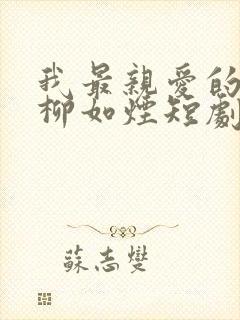 我最親愛的
柳如煙短劇
蘇志燮